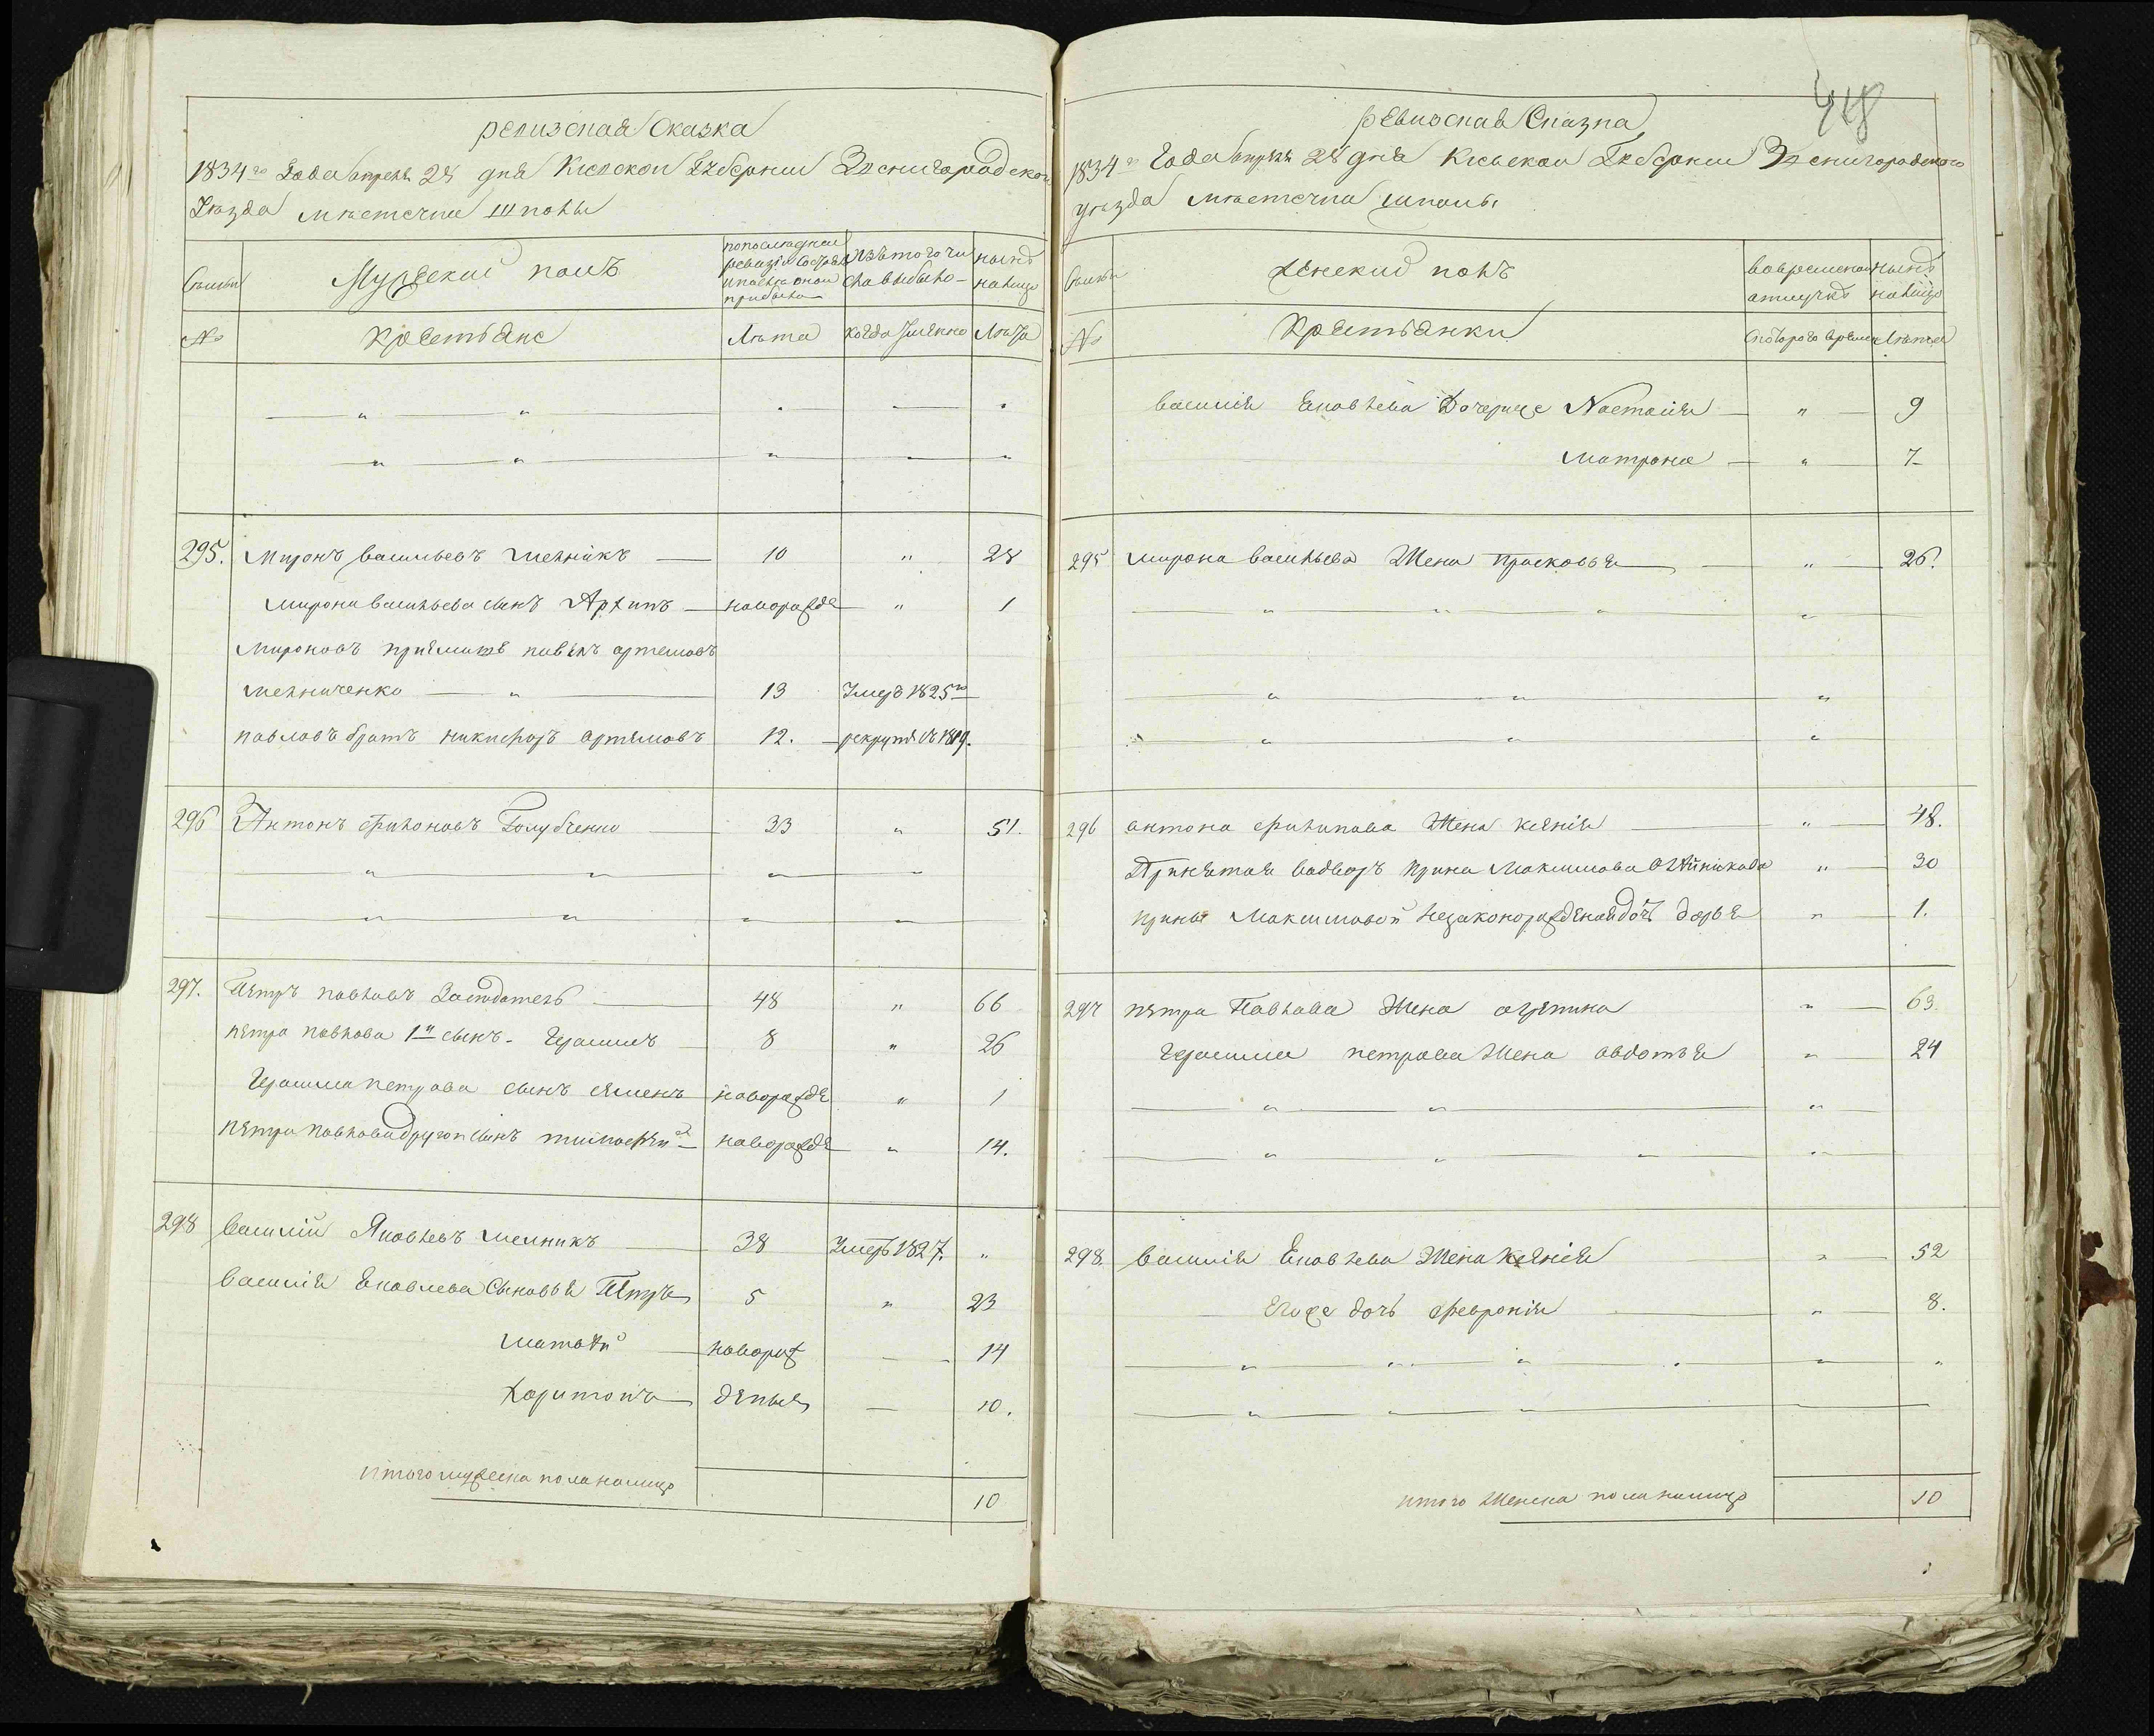 ревизская Сказка
1834го Года апреля 28 дня Киевской Губернии Звенигородскаго
Уезда местечка шполы
Семьи
Мужеский полъ
попоследней
ревизiи состояло
ипосле оной
прибыло
изътого чи
сла выбыло
ныне
налицо
№
Крестьяне
Лета
когда имянно
Лета
295. Миронъ васильевъ мельникъ 10 " 28
мирона васильева сынъ Архипъ новорожде " 1
мироновъ приемышъ павелъ артемовъ
мельниченко " 13 Умеръ 1825го
павловъ братъ никифоръ артемовъ 12. рекрутъ въ 1819.
296 Антонъ филиповъ Голубченко 33 " 51.
297. Петръ павловъ Заседатель 48 " 66
петра павлова 1й сынъ Герасимъ 8 " 26
Герасима петрова сынъ семенъ новорожде " 1
петра павлова другой сынъ тимофей новорожде " 14.
298 василий Яковлевъ мелникъ 38 Умеръ 1827. "
василия Яковлева Сыновья Петръ 5 " 23
матвей новорож 14
Харитонъ денные 10.
итого мужеска пола налицо
10
448
ревизская Сказка
1834го Года апреля 28 дня Киевской Губернии Звенигородского
уезда местечка шполы
Семьи
женский полъ
вовременной
отлучке
ныне
налицо
№
Крестьянки
скоторого времени
Лета
василия Яковлева Дочерице Настасия " 9
матрона " 7
295 мирона васильева Жена Прасковья " 26.
296 антона филипова Жена ксения " 48.
Принятая вадворъ ирина Максимова Олейникова " 30
ирины Максимовой незаконорожденая дочь дарья " 1.
297 петра Павлова Жена огрепина " 63.
Герасима петрова Жена авдотья " 24
298. василия Яковлева Жена ксения " 52
Егоже дочь феврония " 8.
итого Женска пола налицо 10